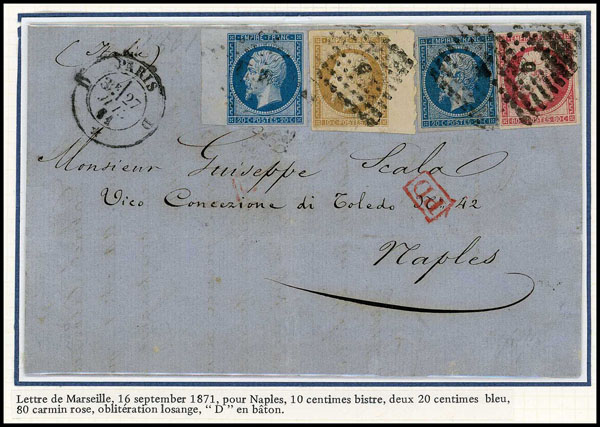 (Italie)
PARIS
27
D
EMPIRE FRANC
20 C POSTES 20 C
EMPIRE FRANC
10 C POSTES 10 C
EMPIRE FRANC
20 C POSTES 20 C
80 C POSTES 80 C
Monsieur Guiseppe Scala
Vico Concezione di Toledo No. 42
PD
Naples
Lettre de Marseille, 16 september 1871, pour Naples, 10 centimes bistre, deux 20 centimes bleu,
80 carmin rose, oblitération losange, “ D ” en bâton.